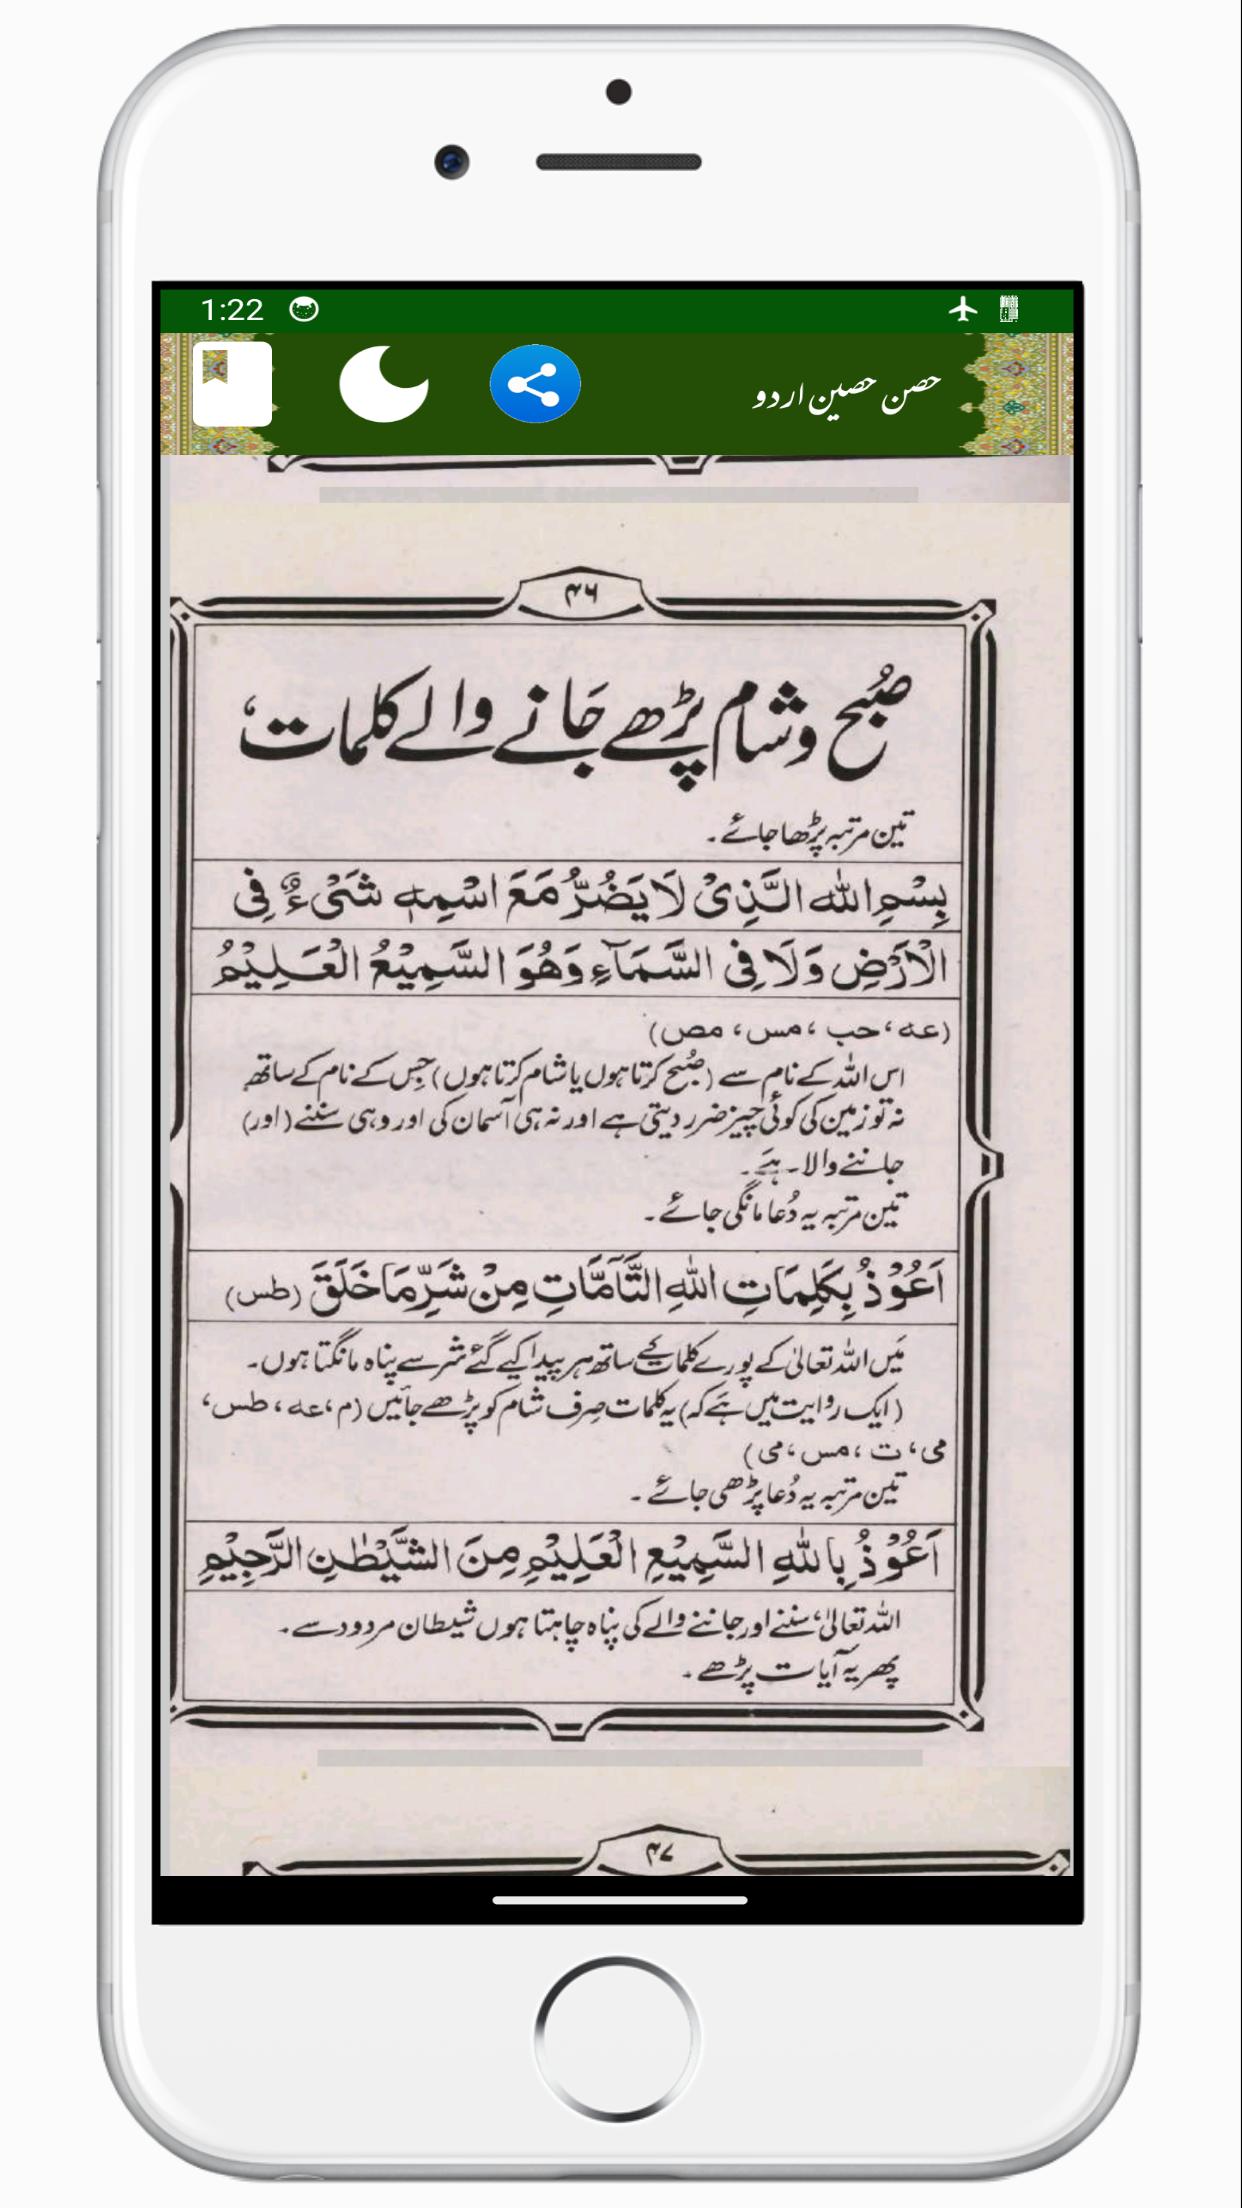 1:22
حصن حصین اردو
۴۶
صُبح و شام پڑھے جَانے والے کلمات،
تین مرتبہ پڑھا جائے۔
بِسْمِ اللّٰهِ الَّذِیْ لَا یَضُرُّ مَعَ اسْمِهٖ شَیْءٌ فِی
الْاَرْضِ وَلَا فِی السَّمَآءِ وَهُوَ السَّمِیْعُ الْعَلِیْمُ
(عه، حب، مس، مص)
اس اللہ کے نام سے (صُبح کرتا ہوں یا شام کرتا ہوں) جِس کے نام کے ساتھ
نہ تو زمین کی کوئی چیز ضرر دیتی ہے اور نہ ہی آسمان کی اور وہی سننے (اور)
جاننے والا۔ ہَے۔
تین مرتبہ یہ دُعا مانگی جائے۔
اَعُوْذُ بِکَلِمَاتِ اللّٰهِ التَّآمَّاتِ مِنْ شَرِّ مَا خَلَقَ (طس)
مَیں اللہ تعالیٰ کے پورے کلمات کے ساتھ ہر پیدا کیے گئے شر سے پناہ مانگتا ہوں۔
(ایک روایت میں ہَے کہ) یہ کلمات صِرف شام کو پڑھے جائیں (م، عه، طس،
می، ت، مس، می)
تین مرتبہ یہ دُعا پڑھی جائے۔
اَعُوْذُ بِاللّٰهِ السَّمِیْعِ الْعَلِیْمِ مِنَ الشَّیْطٰنِ الرَّجِیْمِ
اللہ تعالیٰ، سننے اور جاننے والے کی پناہ چاہتا ہوں شیطان مردود سے۔
پھر یہ آیات پڑھے۔
۴۷